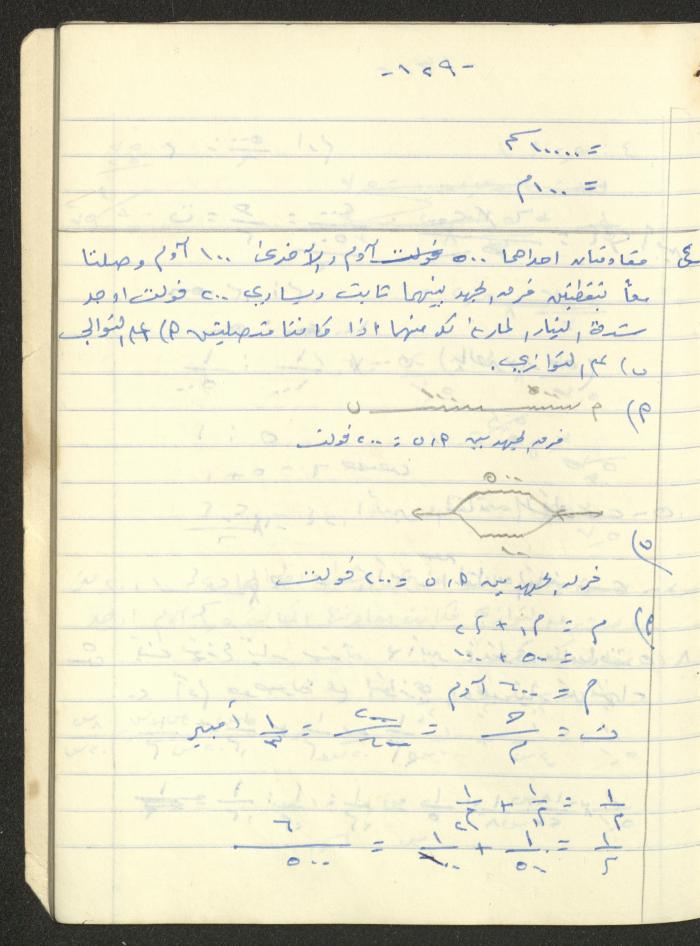 -١٢٩-
= ١٠٠٠٠ سم
= ١٠٠ م
مقاومتان احداهما ٥٠٠ اوم والأخرى ١٠٠ اوم وصلتا
معاً بنقطتين فرق الجهد بينهما ثابت ويساوي ٢٠٠ فولت اوجد
شدة التيار المار في كل منهما اذا كانتا متصليتين ٩) على التوالي
ب) على التوازي.
٩) ٩ ٥٠٠ ١٠٠ ب
فرق الجهد بين ٩، ب = ٢٠٠ فولت
٥٠٠
ب)
١٠٠
فرق الجهد بين ٩، ب = ٢٠٠ فولت
٩) م = م١ + م٢
= ٥٠٠ + ١٠٠
م = ٦٠٠ اوم
ت = ج/م = ٢٠٠/٦٠٠ = ١/٣ أمبير
١/م = ١/م١ + ١/م٢
١/م = ١/٥٠٠ + ١/١٠٠ = ٦/٥٠٠